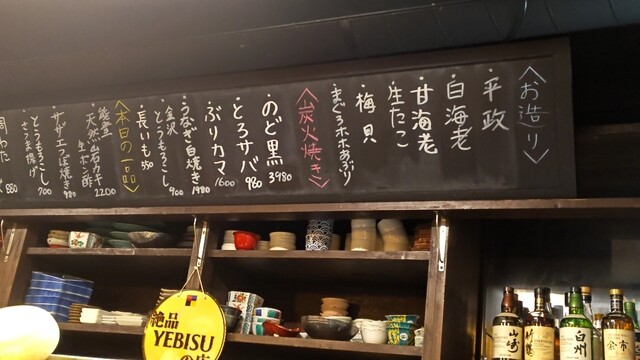 〈お造り〉
・平政
・白海老
・甘海老
・生たこ
・梅貝
・まぐろホホあぶり
〈炭火焼き〉
・のど黒 3980
・とろサバ 980
・ぶりカマ 1600
・うなぎ白焼き 1980
・金沢とうもろこし 900
・長いも 550
〈本日の一品〉
能登天然岩ガキ 生・ポン酢 2200
サザエつぼ焼き 980
とうもろこしさつま揚げ 700
880
絶品
YEBISU
の店
山崎
白州
余市